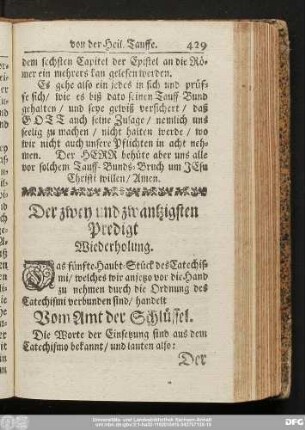 von der Heil. Tauffe. 429
dem sechsten Capitel der Epistel an die Rö-
mer ein mehrers kan gelesen werden.
Es gehe also ein jedes in sich und prüf-
fe sich/ wie es biß dato seinen Tauff-Bund
gehalten/ und seye gewiß versichert/ daß
GOTT auch seine Zusage/ nemlich uns
seelig zu machen/ nicht halten werde/ wo
wir nicht auch unsere Pflichten in acht neh-
men. Der HERR behüte aber uns alle
vor solchem Tauff-Bunds-Bruch um JEsu
Christi willen/ Amen.
Der zwey und zwantzigsten
Predigt
Wiederholung.
Das fünfte Haubt-Stück des Catechis-
mi/ welches wir anjetzo vor die Hand
zu nehmen durch die Ordnung des
Catechismi verbunden sind/ handelt
Vom Amt der Schlüssel.
Die Worte der Einsetzung sind aus dem
Catechismo bekannt/ und lauten also:
Der